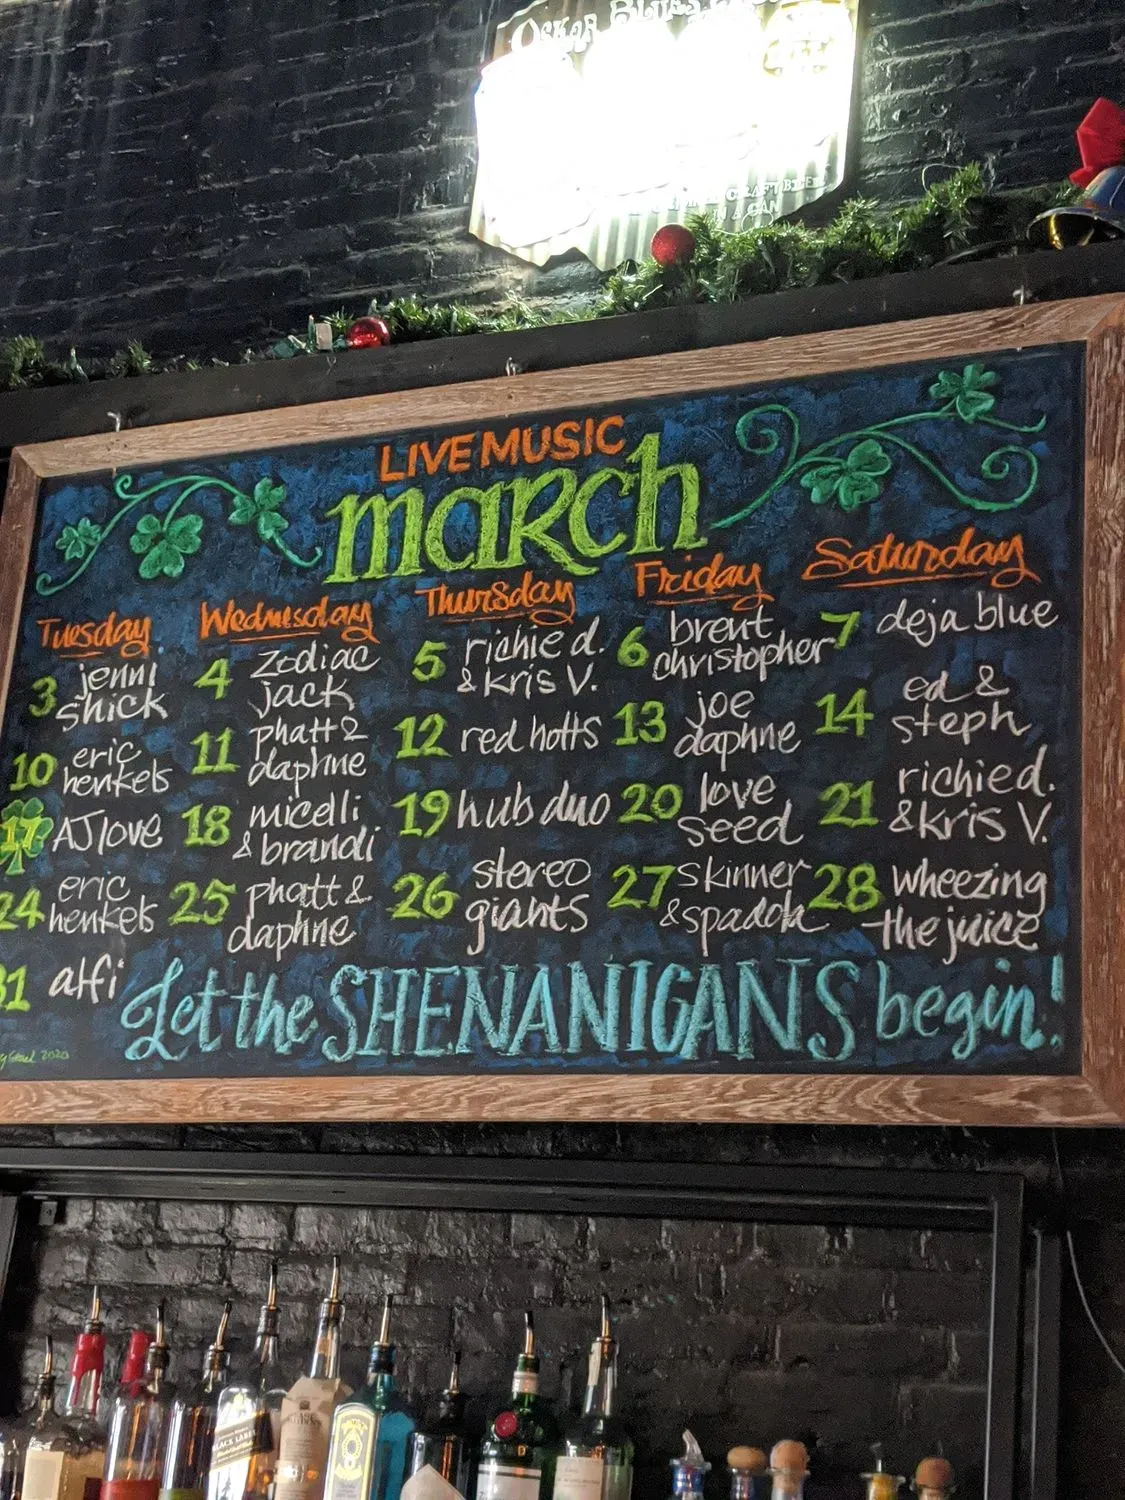 Oskar Blues
CRAFT BEER
A CAN
LIVE MUSIC
march
Tuesday Wednesday Thursday Friday Saturday
3 jenni shick
4 zodiac jack
5 richie d. & kris V.
6 brent christopher
7 deja blue
10 eric henkels
11 phatt & daphne
12 red hotts
13 joe daphne
14 ed & steph
17 AJ love
18 micelli & brandi
19 hub duo
20 love seed
21 richie d. & kris V.
24 eric henkels
25 phatt & daphne
26 stereo giants
27 skinner & spadola
28 wheezing the juice
31 alfi
Let the SHENANIGANS begin!
2020
BLACK LABEL